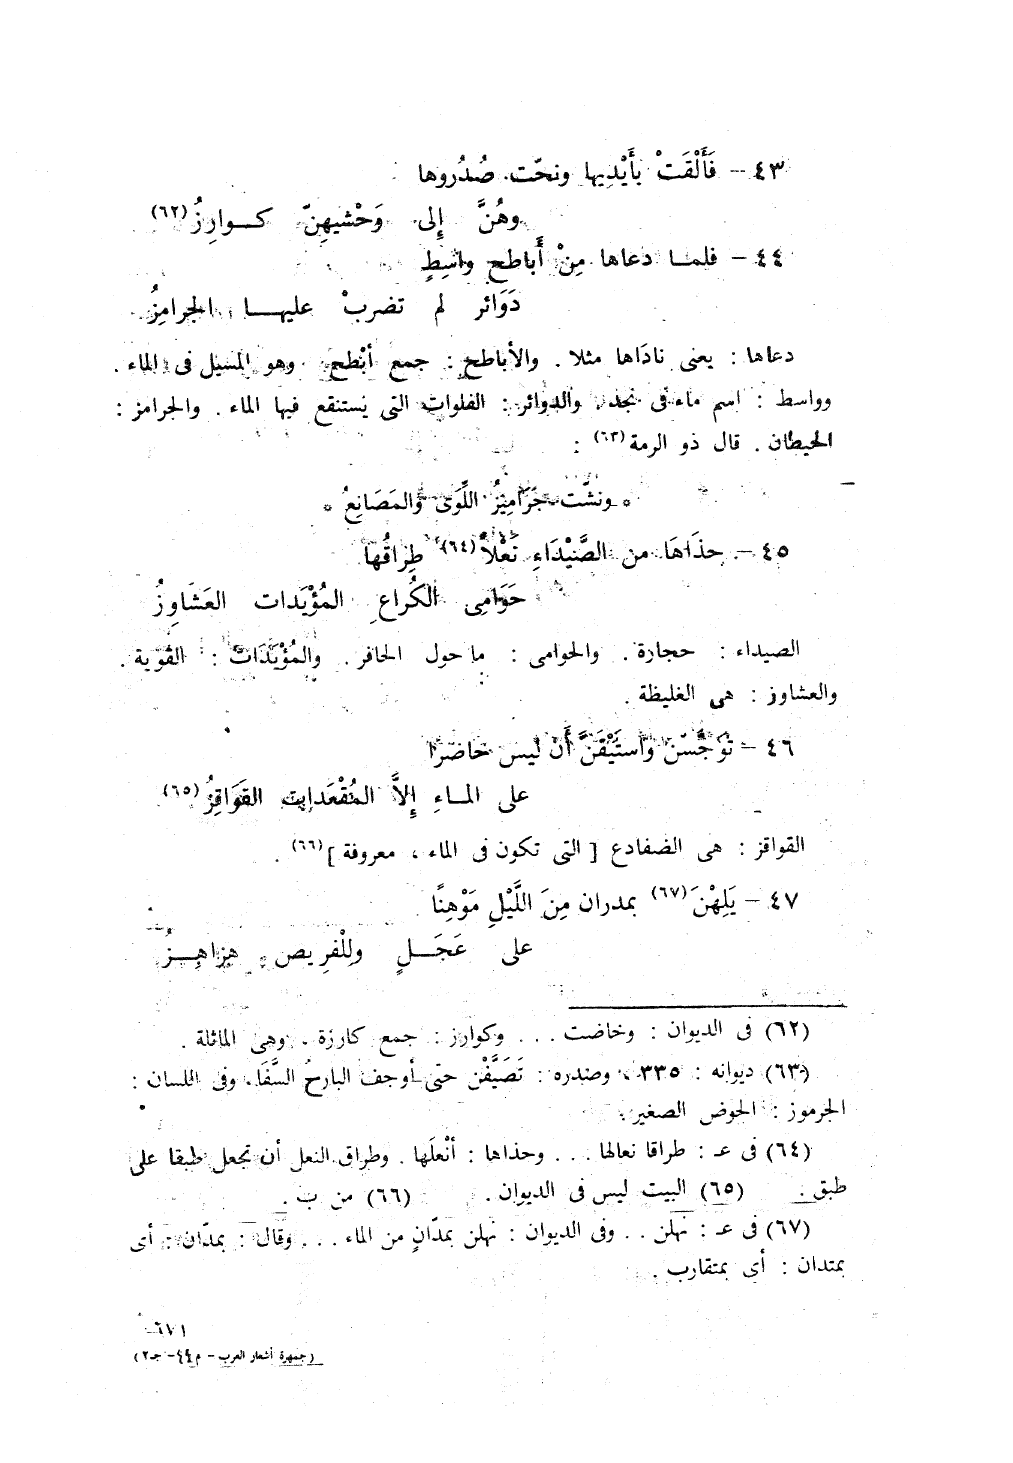 ٤٣ – فَأَلْقَتْ بأَيْدِيها ونحّت صُدُروها
وهُنَّ إِلى وَحْشيهِنّ كـوارِزُ (٦٢)
٤٤ – فلمـا دعاها مِنْ أَباطح واسِطٍ
دَوَائر لم تضربْ عليهـا الجرامِزُ
دعاها : يعنى نادَاها مثلا . والأباطح : جمع أبْطح وهو المسيل فى الماء .
وواسط : اسم ماء فى نجد . والدوائر : الفلوات التى يَستنقع فيها الماء . والجرامز :
الحيطان . قال ذو الرمة (٦٣) :
* ونشّت جَرَامِيزُ اللِّوَى والمَصَانِعُ *
٤٥ – حذَاهَا من الصَّيْدَاءِ نَعْلاً (٦٤) طِراقُها
حَوَامِى الكُراعِ المُؤيَدات العَشَاوِزُ
الصيداء : حجارة . والحوامى : ما حول الحافر . والمُؤيَدَات : القوية .
والعشاوز : هى الغليظة .
٤٦ – تَوَجَّسْنَ واستَيْقَنَّ أَن ليس حَاضرًا
على المـاءِ إِلاَّ المُقْعَدات القَوَاقِزُ (٦٥)
القواقز : هى الضفادع [ التى تكون فى الماء ، معروفة ] (٦٦) .
٤٧ – يَلِهْنَ (٦٧) بمدران مِنَ اللَّيْلِ مَوْهِنًا
على عَجَـلٍ ولِلْفرِيص هزاهِـزُ
(٦٢) فى الديوان : وخاضت . . . وكوارز : جمع كارزة . وهى الماثلة .
(٦٣) ديوانه : ٣٣٥ ، وصدره : تَصَيَّفْن حتى أوجف البارحُ السَّفَا . وفى اللسان :
الجرموز : الحوض الصغير .
(٦٤) فى عـ : طراقا نعالها . . . وحذاها : أنْعلَها . وطراق النعل أن تجعل طبقا على
طبق . (٦٥) البيت ليس فى الديوان . (٦٦) من ب .
(٦٧) فى عـ : نهلن . . وفى الديوان : نهلن بمدّانٍ من الماء . . . وقال : بمدّان : أى
بمتدان : أى بمتقارب .
٦٧١
( جمهرة أشعار العرب – م ٤٤ – جـ ٢ )